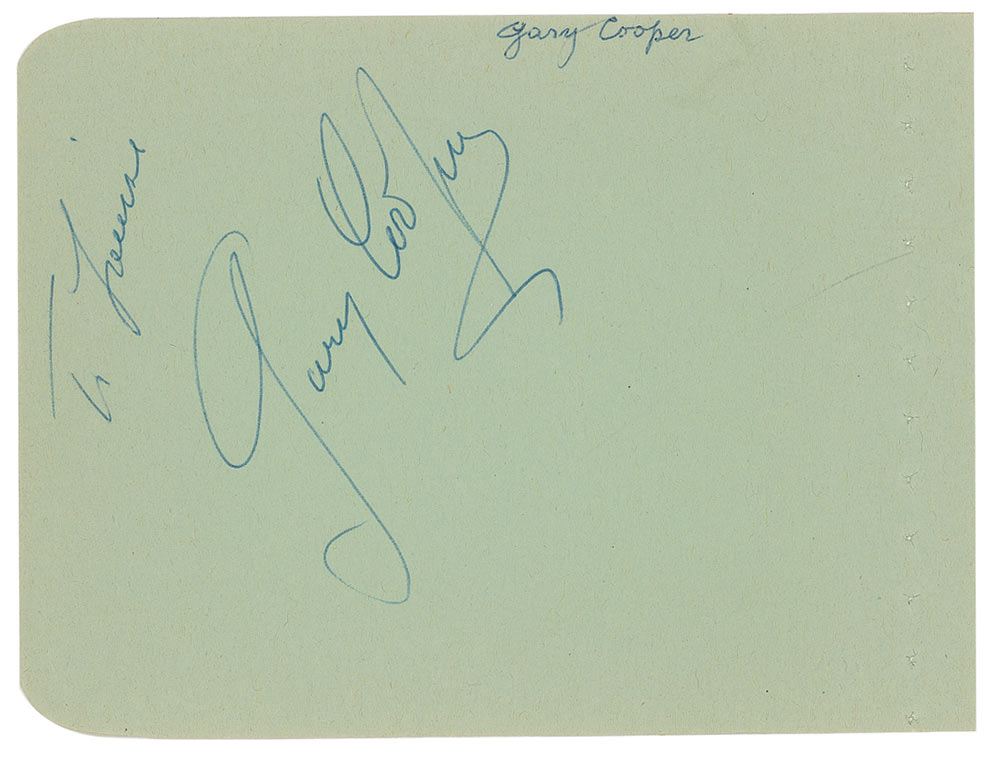 Gary Cooper
To
Gary Cooper